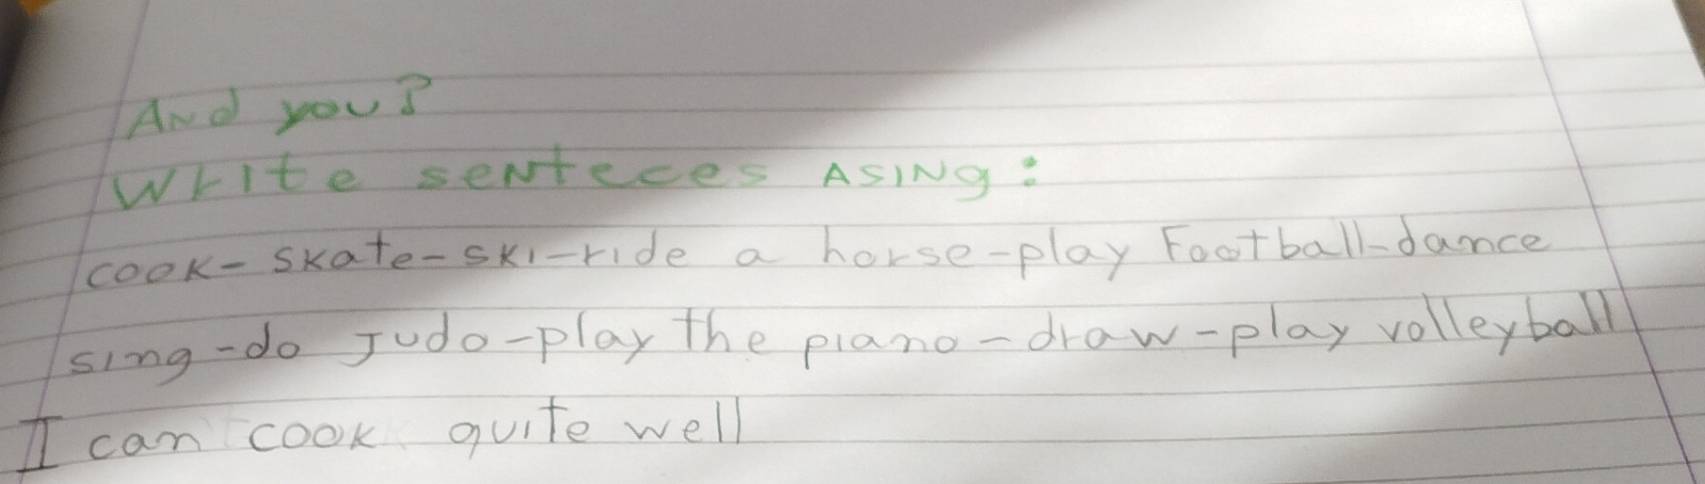 And you?
Write senteces Asing:
cook-skate-ski-ride a horse-play Football-dance
sing-do Judo-play the piano-draw-play volleyball
I can cook quite well